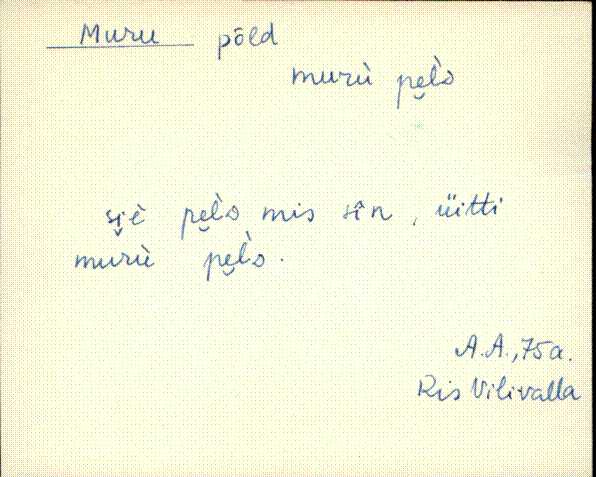 Muru põld
murù pe̮l̀o
si̮è pe̮l̀o mis sîn, üitti
murù pe̮l̀o.
A.A., 75a.
Ris Vilivalla